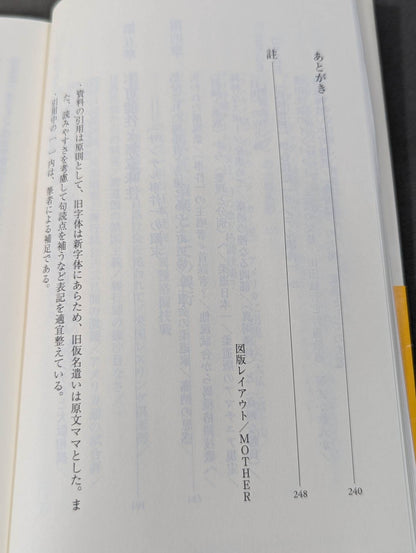 あとがき 240
註 248
図版レイアウト／MOTHER
・資料の引用は原則として、旧字体は新字体にあらため、旧仮名遣いは原文ママとした。ま
た、読みやすさを考慮して句読点を補うなど表記を適宜整えている。
・引用中の〔　〕内は、筆者による補足である。